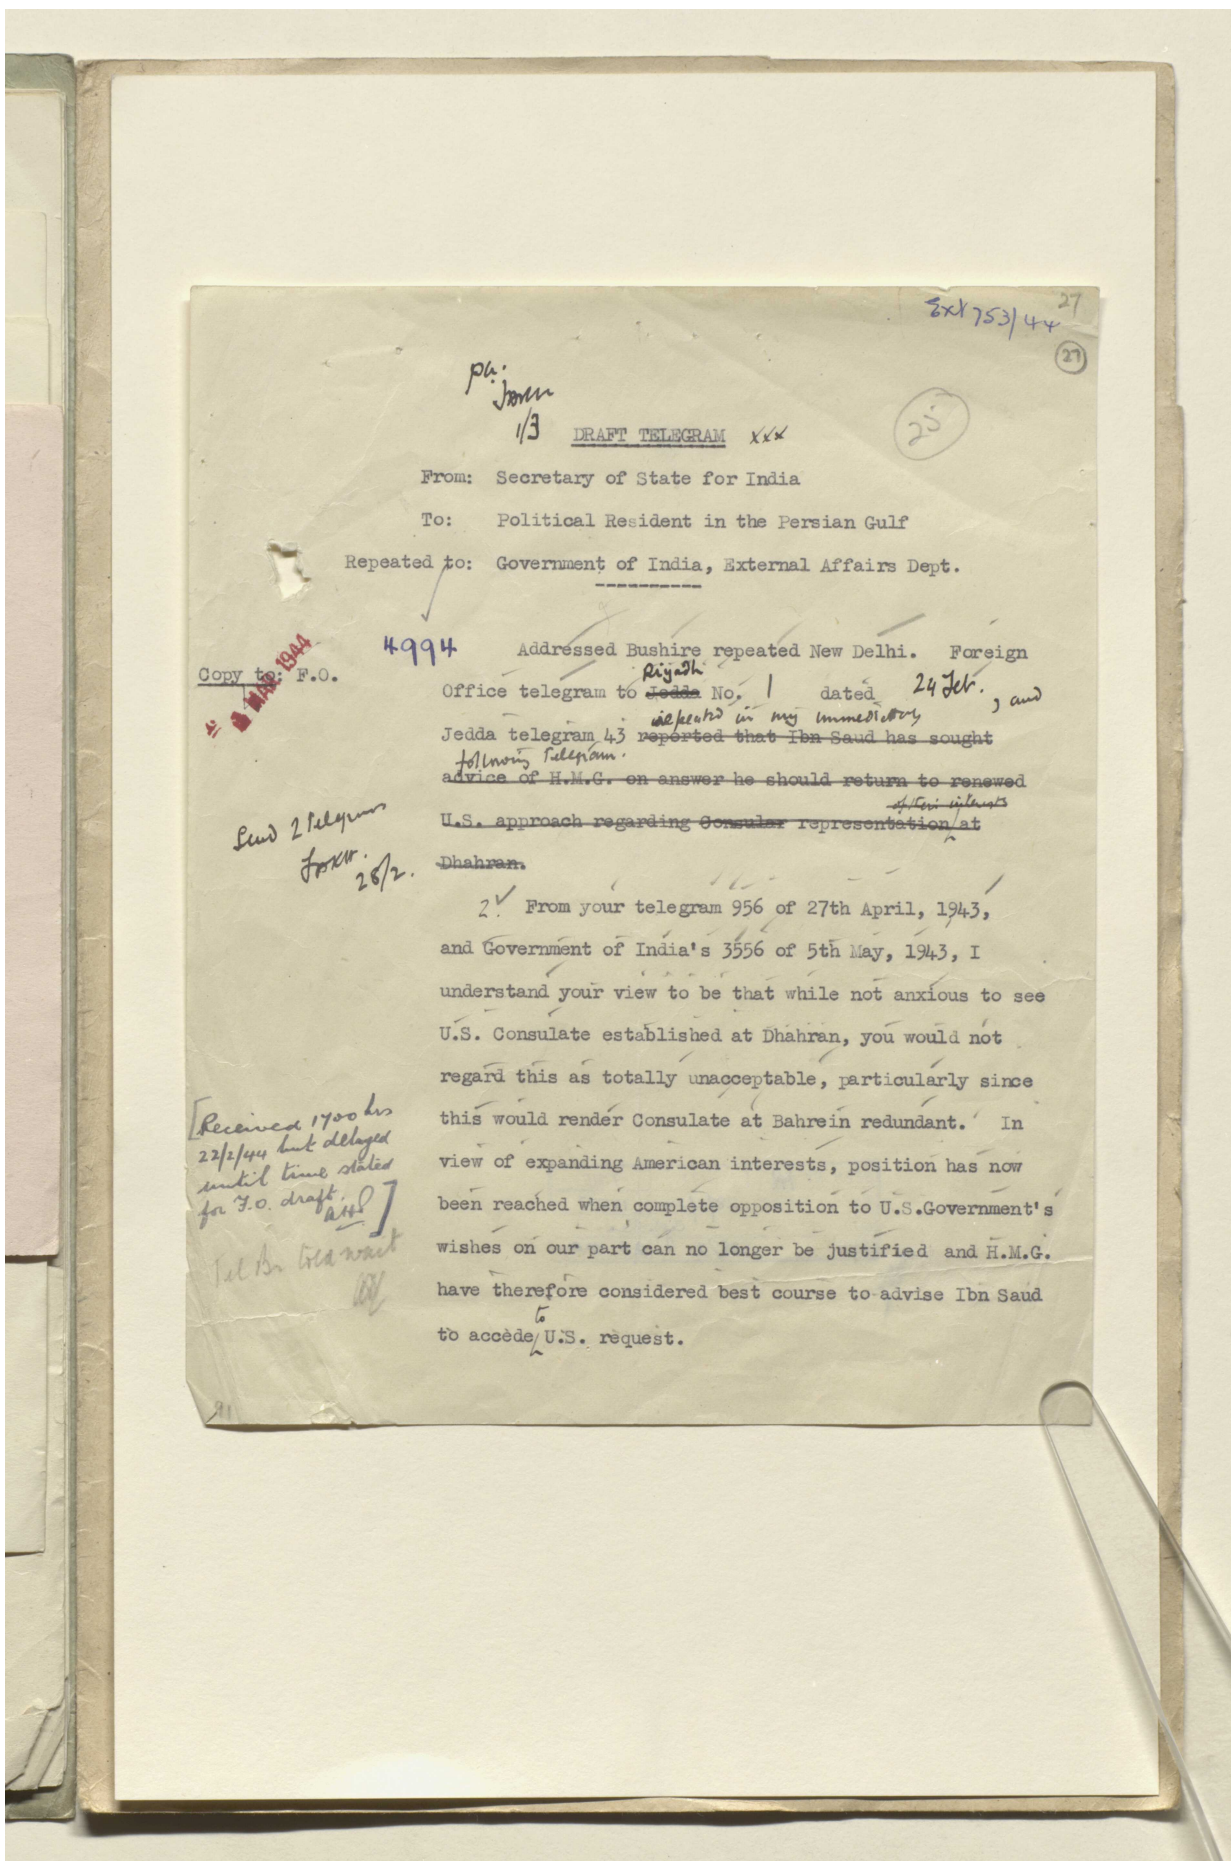 27
Ext 753/44
27
p.a.
1/3
25
DRAFT TELEGRAM xxx
From: Secretary of State for India
To: Political Resident in the Persian Gulf
Repeated to: Government of India, External Affairs Dept.
4994
Addressed Bushire repeated New Delhi. Foreign
MAR 1944
Copy to: F.O.
Riyadh
Office telegram to Jedda No. 1 dated 24 Feb., and
repeated in my immediately
Jedda telegram 43 reported that Ibn Saud has sought
following telegram.
advice of H.M.G. on answer he should return to renewed
interests
U.S. approach regarding Consular representation at
Dhahran.
Send 2 Telegrams
28/2.
2. From your telegram 956 of 27th April, 1943,
and Government of India's 3556 of 5th May, 1943, I
understand your view to be that while not anxious to see
U.S. Consulate established at Dhahran, you would not
regard this as totally unacceptable, particularly since
this would render Consulate at Bahrein redundant. In
view of expanding American interests, position has now
been reached when complete opposition to U.S.Government's
wishes on our part can no longer be justified and H.M.G.
have therefore considered best course to advise Ibn Saud
to
to accede U.S. request.
[Received 1700 hrs
22/2/44 but delayed
until time stated
for F.O. draft.
]
91